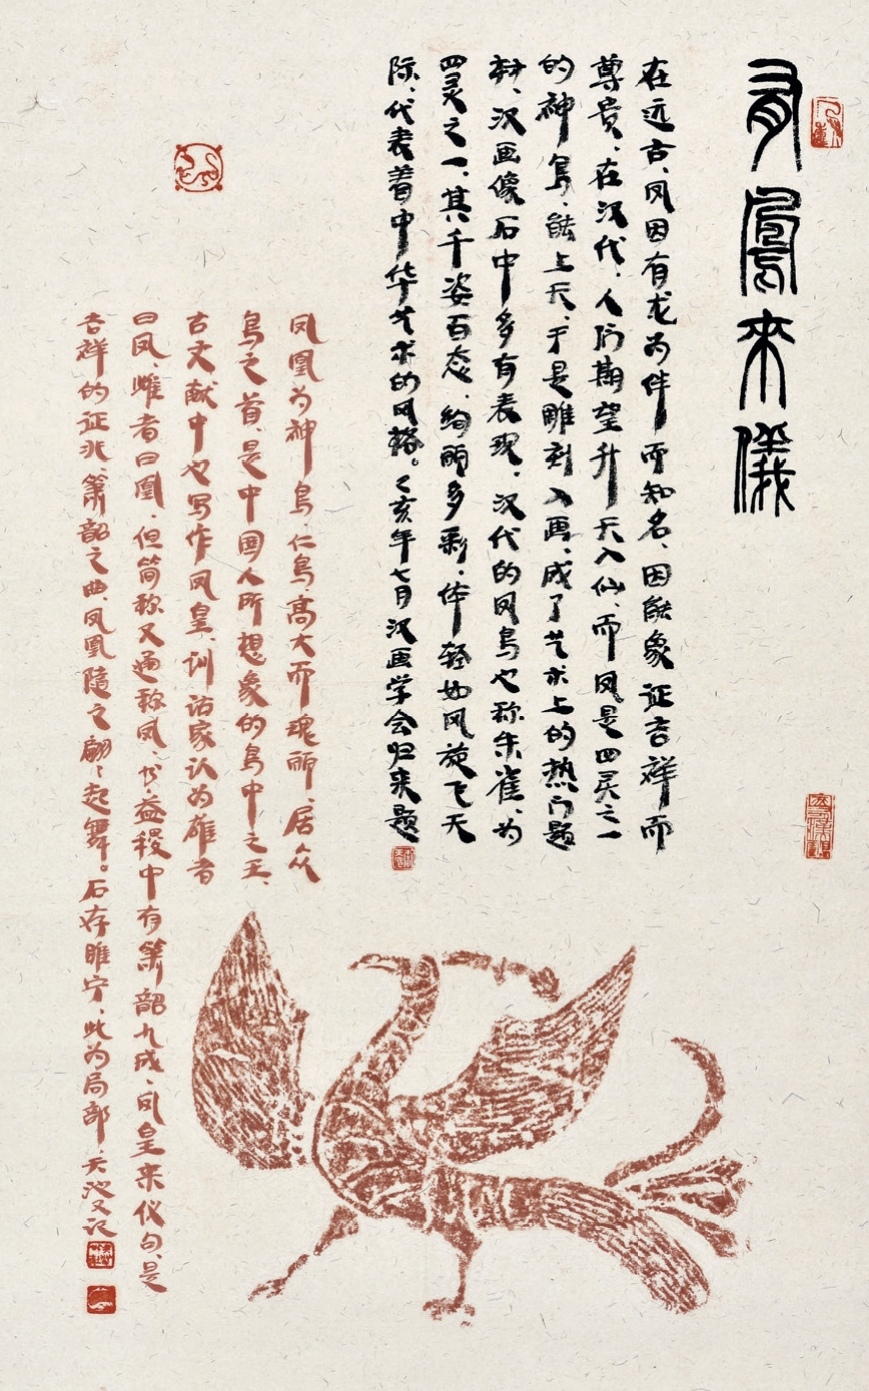 有鳳來儀
在远古、凤因有龙为伴而知名、因能象证吉祥而
尊贵、在汉代、人们期望升天入仙、而凤是四灵之一
的神鸟、能上天、于是雕刻入画、成了艺术上的热门题
材、汉画像石中多有表现、汉代的凤鸟也称朱雀、为
四灵之一、其千姿百态、绚丽多彩、体轻如风旋飞天
际、代表着中华艺术的风格。己亥年七月汉画学会归来题
凤凰为神鸟、仁鸟、高大而瑰丽、居众
鸟之首、是中国人所想象的鸟中之王、
古文献中也写作凤皇、训诂家认为雄者
曰凤、雌者曰凰、但简称又通称凤、书·益稷中有箫韶九成、凤皇来仪句、是
吉祥的征兆、箫韶之曲、凤凰随之翩々起舞。石存睢宁、此为局部、天池又记